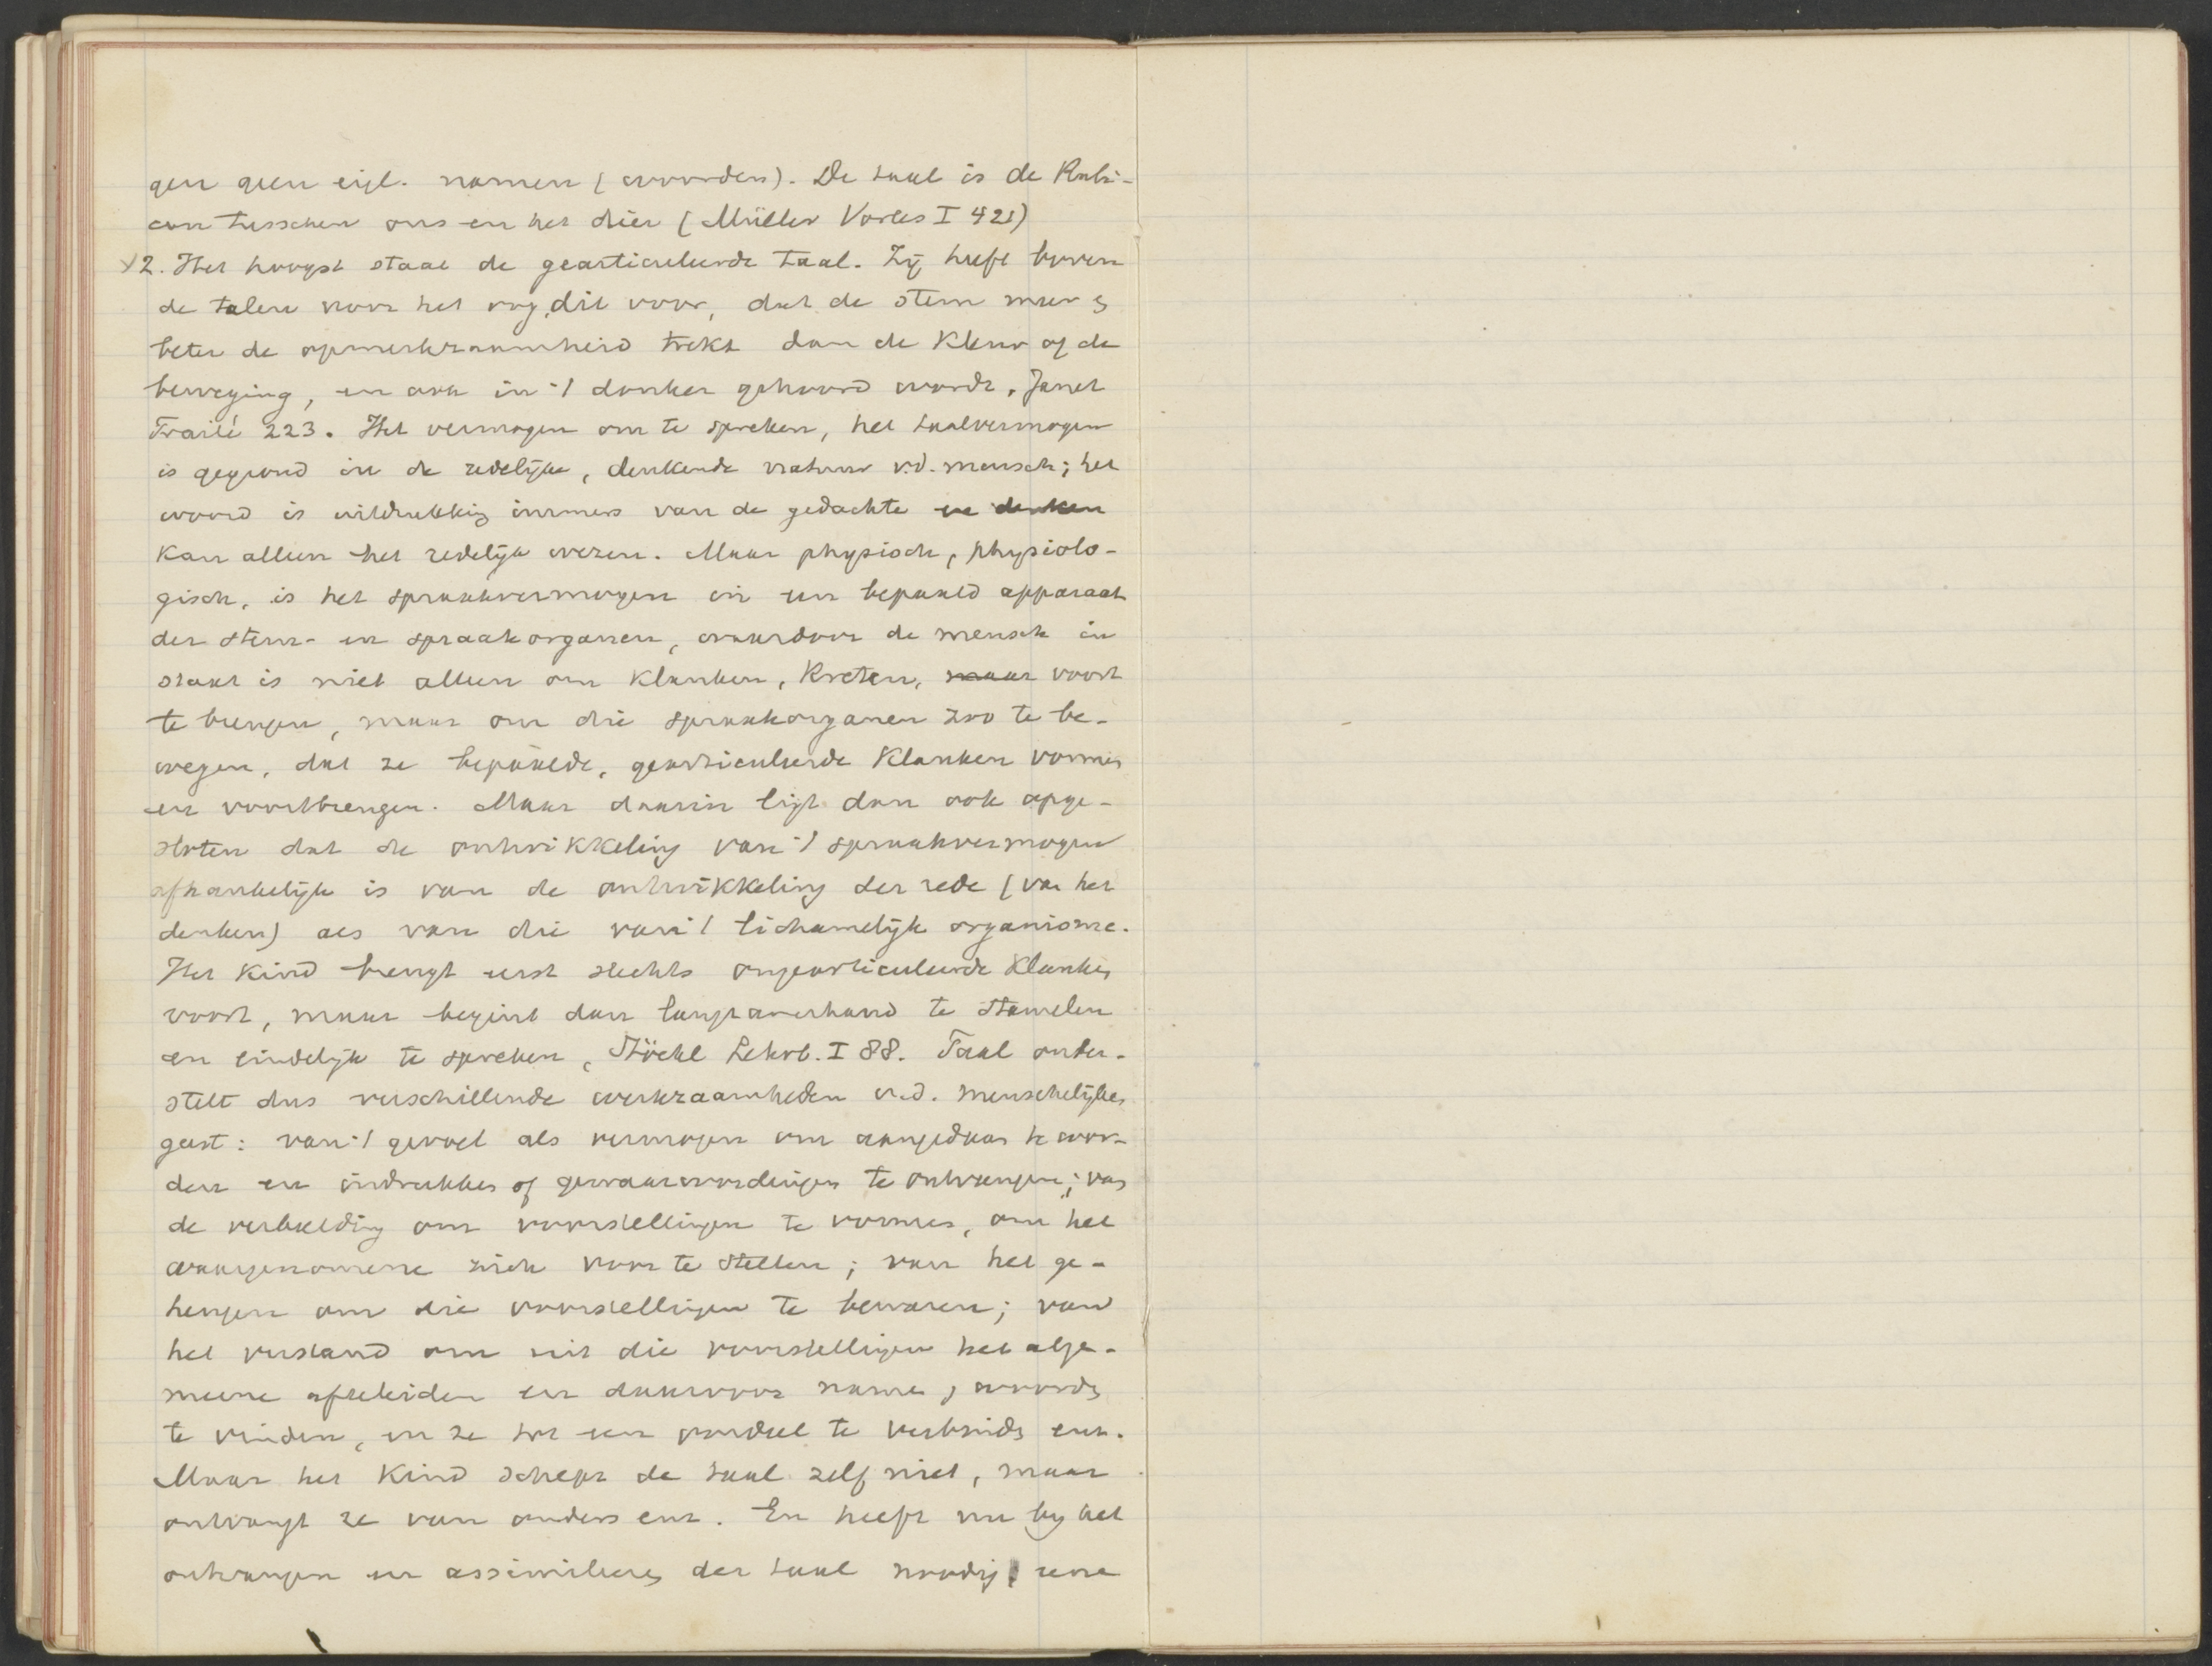 gen geen eigl. namen (woorden). De taal is de Rubi-
con tusschen ons en het dier (Müller Vorles I 421)
2. Het hoogst staat de gearticuleerde taal. Zij heeft boven
de talen voor het oog dit voor, dat de stem meer &
beter de opmerkzaamheid trekt dan de kleur of de
beweging, en ook in 't donker gehoord wordt. Janet
Traité 223. Het vermogen om te spreken, het taalvermogen
is gegrond in de redelijke, denkende natuur v.d. mensch; het
woord is uitdrukking immers van de gedachte en denken
kan alleen het redelijk wezen. Maar physisch, physiolo-
gisch, is het spraakvermogen in een bepaald apparaat
der stem- en spraakorganen, waardoor de mensch in
staat is niet alleen om klanken, kreten, maar voort
te brengen, maar om die spraakorganen zoo te be-
wegen, dat ze bepaalde, gearticuleerde klanken vormen
en voortbrengen. Maar daarin ligt dan ook opge-
sloten dat de ontwikkeling van 't spraakvermogen
afhankelijk is van de ontwikkeling der rede (van het
denken) als van die van 't lichamelijk organisme.
Het kind brengt eerst slechts ongearticuleerde klanken
voort, maar begint dan langzamerhand te stamelen
en eindelijk te spreken, Stöckl Lehrb. I 88. Taal onder-
stelt dus verschillende werkzaamheden v.d. menschelijken
geest: van 't gevoel als vermogen om aangedaan te wor-
den en indrukken of gewaarwordingen te ontvangen; van
de verbeelding om voorstellingen te vormen, om het
waargenomene zich voor te stellen; van het ge-
heugen om die voorstellingen te bewaren; van
het verstand om uit die voorstellingen het alge-
meene afteleiden en daarvoor namen, woorden
te vinden, en ze tot een oordeel te verbinden enz.
Maar het kind schept de taal zelf niet, maar
ontvangt ze van ouders enz. En heeft nu bij het
ontvangen en assimileeren der taal noodig, eene